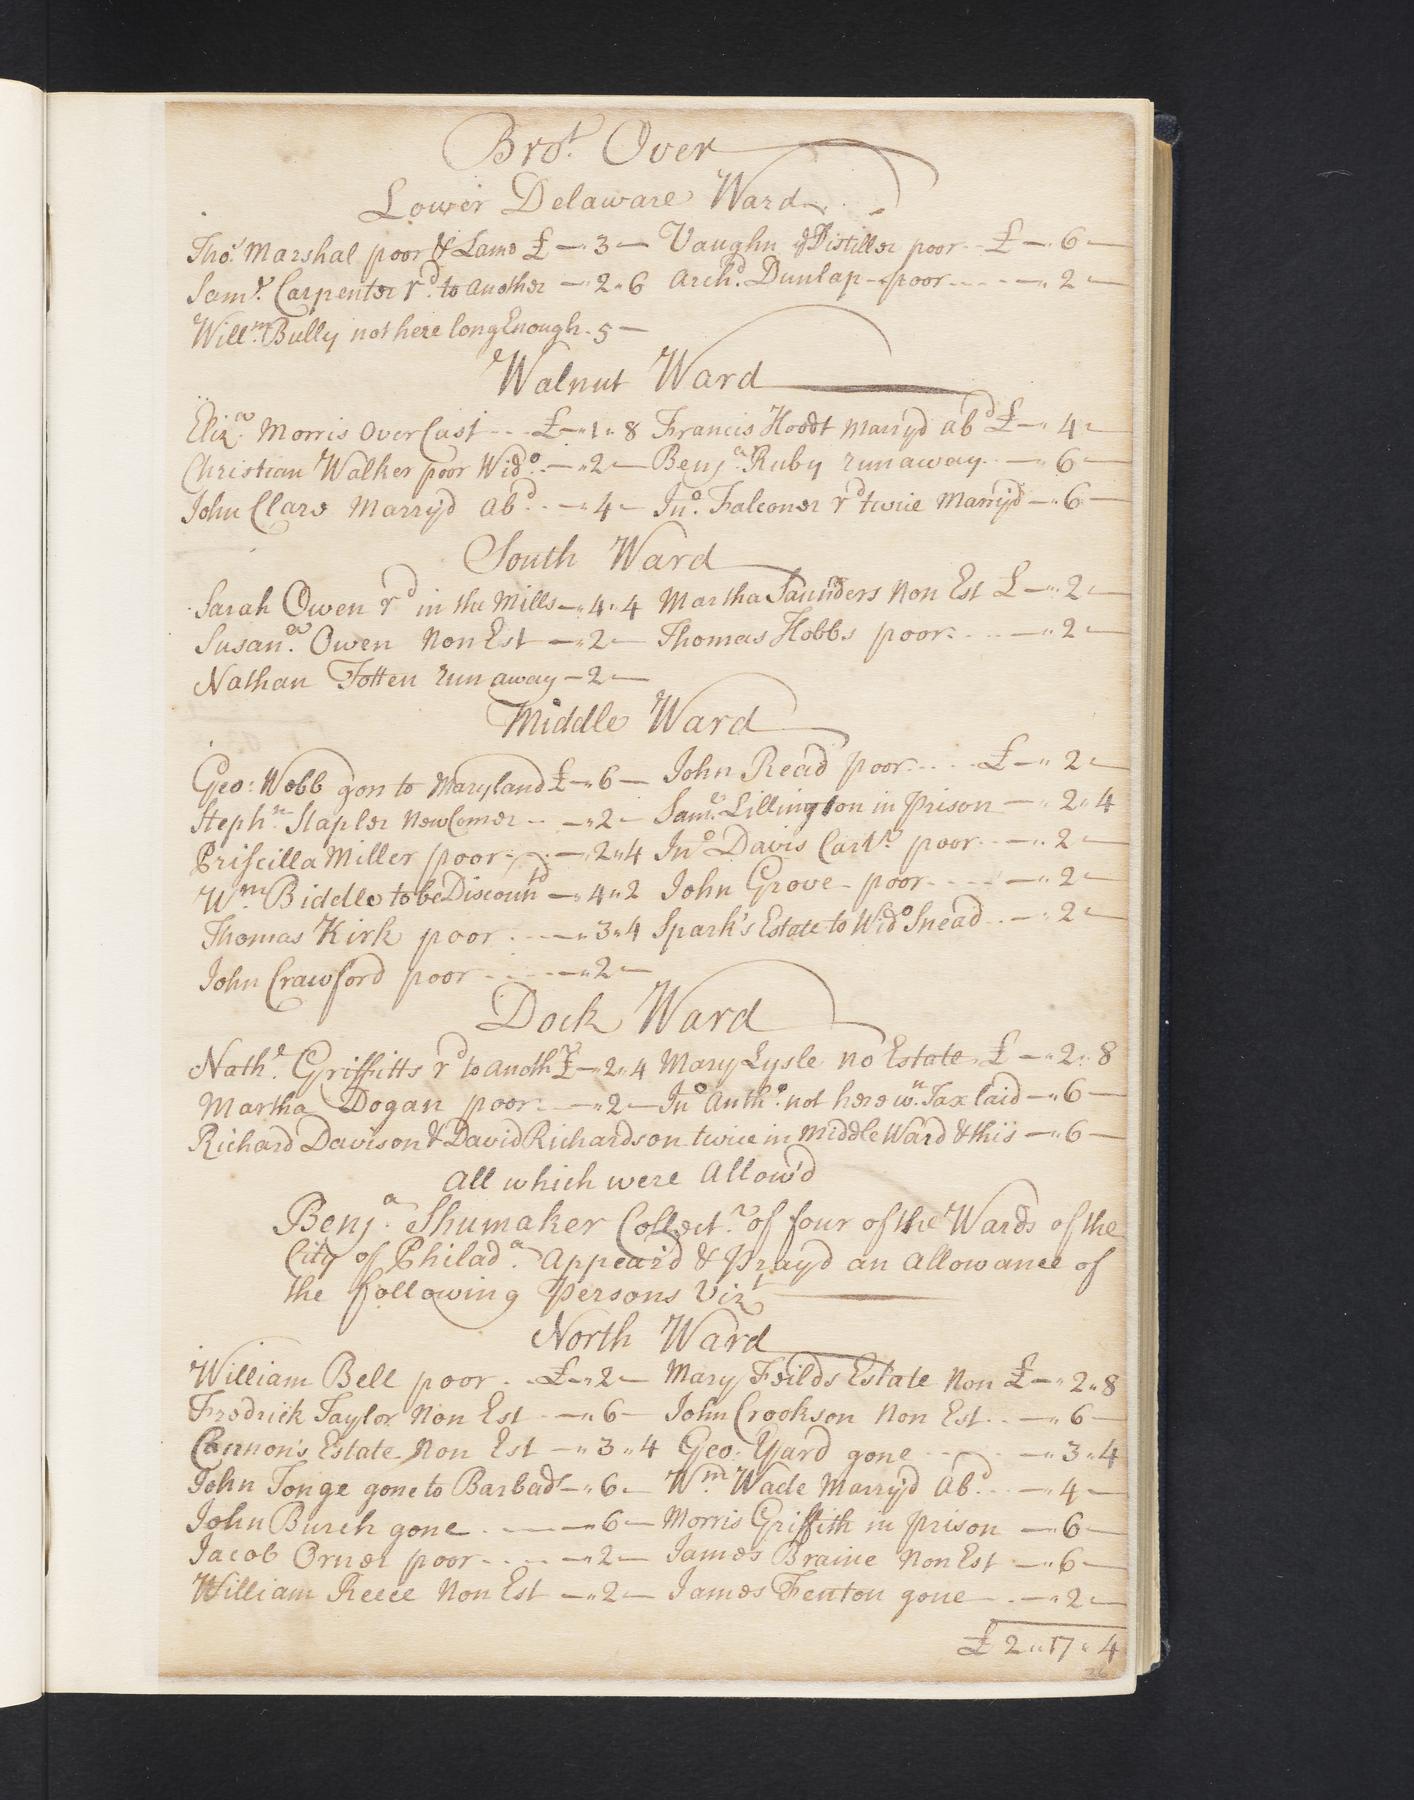 Bro.t Over
Lower Delaware Ward
Tho.s Marshal poor & Lame £ —„ 3 — Vaughn ye Distiller poor - - £ —„ 6 —
Sam.l Carpenter r.d to another —„ 2„ 6 Arch.d Dunlap - - poor - - - - —„ 2 —
Will.m Bully not here long Enough - 5 —
Walnut Ward
Eliz.a Morris Over Cast - - - £ —„ 1„ 8 Francis Hoodt Marryd ab.d £ —„ 4 —
Christian Walker poor Wid.o - —„ 2 — Benj.a Ruby runaway - - —„ 6 —
John Clare Marry'd ab.d - - —„ 4 — Jn.o Falconer r.d twice Marry'd —„ 6 —
South Ward
Sarah Owen r.d in the Mills —„ 4„ 4 Martha Saunders Non Est £ —„ 2 —
Susan.a Owen Non Est —„ 2 — Thomas Hobbs poor - - - —„ 2 —
Nathan Totten runaway — 2 —
Middle Ward
Geo: Webb gon to Maryland £ —„ 6 — John Read poor - - - - £ —„ 2 —
Steph.n Stapler New Comer - - —„ 2 — Sam.l Lillington in Prison —„ 2„ 4
Priscilla Miller poor - - - —„ 2„ 4 Jn.o Davis Cart.r poor - - —„ 2 —
W.m Biddle to be Discount.d —„ 4„ 2 John Grove - poor - - - - —„ 2 —
Thomas Kirk poor - - - —„ 3„ 4 Spark's Estate to Wid.o Snead - - —„ 2 —
John Crawford poor - - - - —„ 2 —
Dock Ward
Nath.l Griffitts r.d to anoth.r £ —„ 2„ 4 Mary Lysle no Estate £ —„ 2„ 8
Martha Dogan poor - - —„ 2 — Jn.o Anth.o not here w.n Tax laid —„ 6 —
Richard Davison & David Richardson twice in Middle Ward & this —„ 6 —
All which were Allow'd
Benj.a Shumaker Collect.r of four of the Wards of the
City of Philad.a Appear'd & Pray'd an Allowance of
the following Persons Viz.t
North Ward
William Bell poor - - £ —„ 2 — Mary Feilds Estate Non £ —„ 2„ 8
Fredrick Taylor Non Est - - —„ 6 — John Crookson Non Est - - —„ 6 —
Cannon's Estate Non Est —„ 3„ 4 Geo. Yard gone - - - —„ 3„ 4
John Tonge gone to Barbad.s —„ 6 — W.m Wade Marry'd ab.d - - —„ 4 —
John Burch gone - - —„ 6 — Morris Griffith in Prison —„ 6 —
Jacob Orner poor - - - - —„ 2 — James Braine Non Est —„ 6 —
William Reece Non Est —„ 2 — James Fenton gone - - —„ 2 —
£ 2„ 17„ 4
26